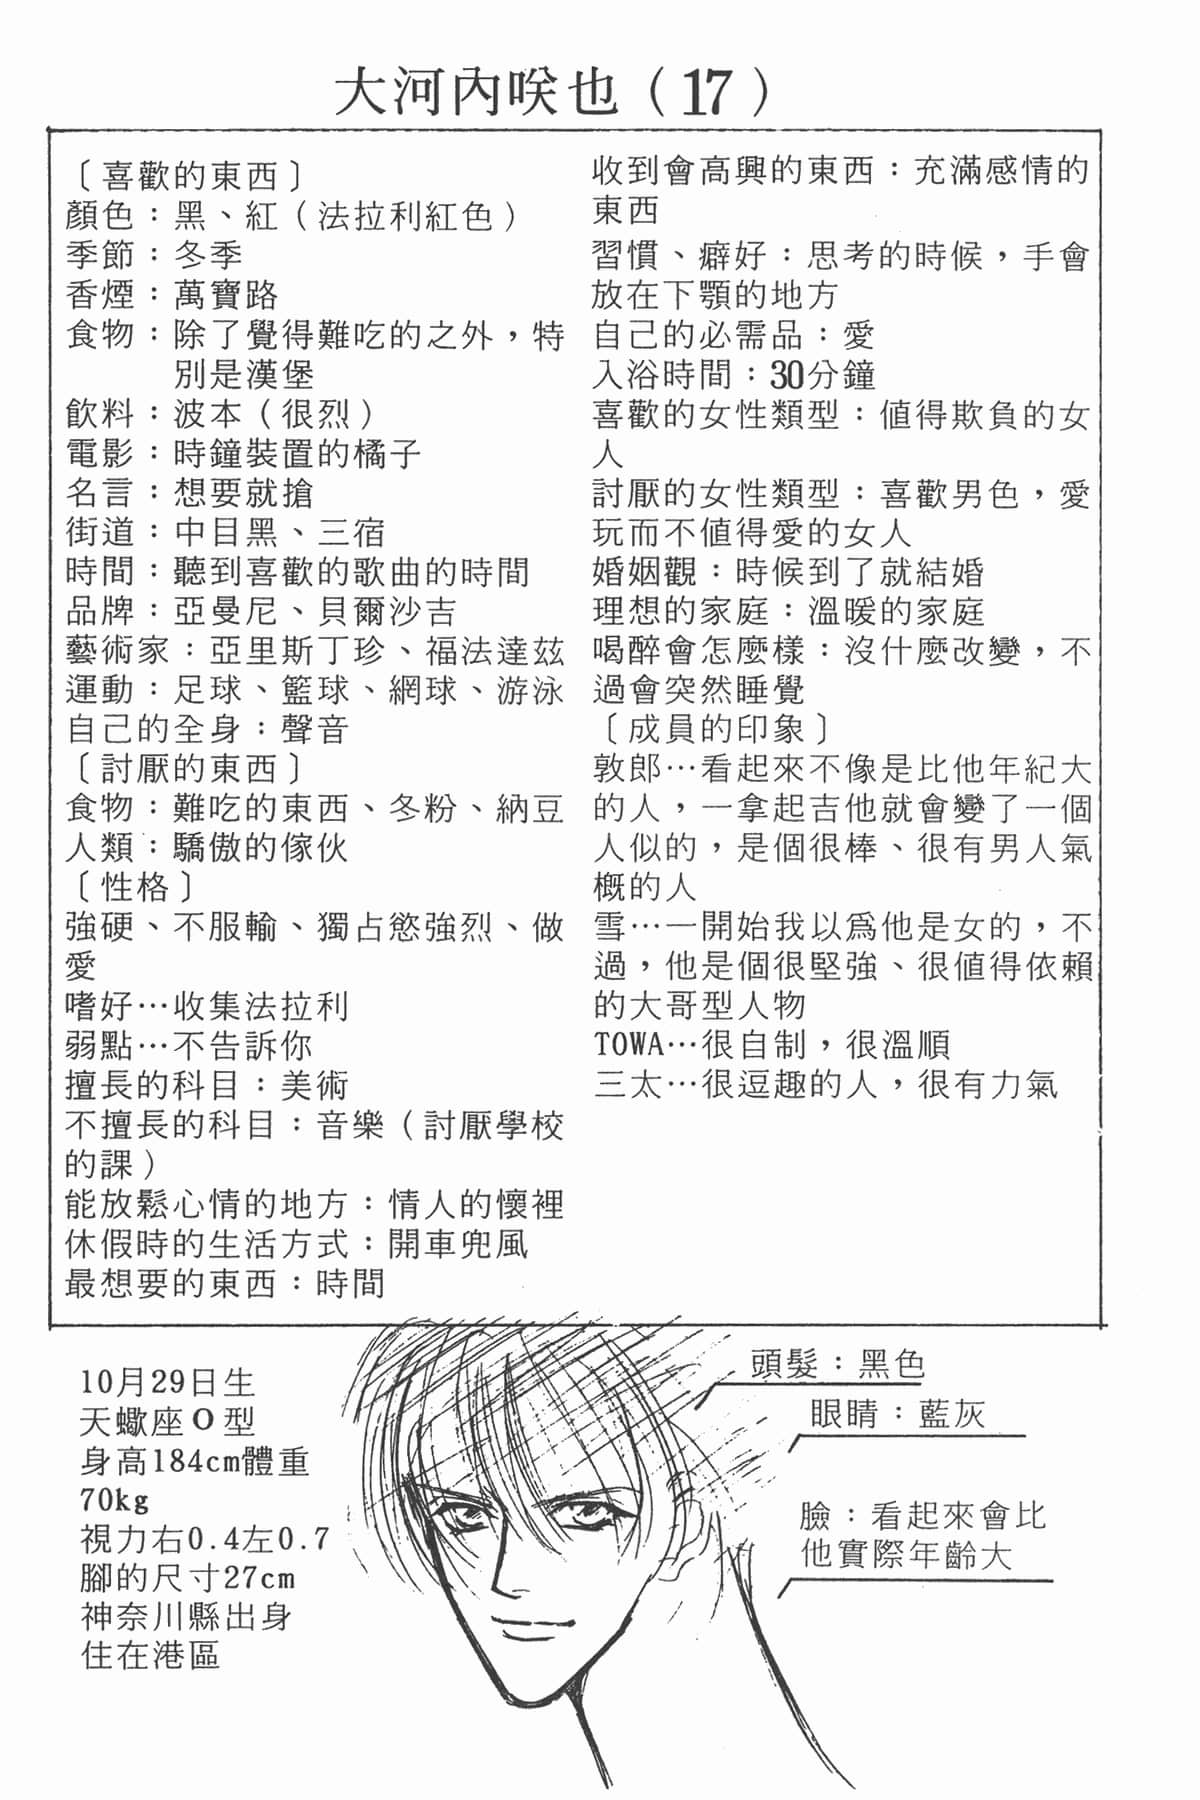 大河內咲也（17）
〔喜歡的東西〕
顏色：黑、紅（法拉利紅色）
季節：冬季
香煙：萬寶路
食物：除了覺得難吃的之外，特
別是漢堡
飲料：波本（很烈）
電影：時鐘裝置的橘子
名言：想要就搶
街道：中目黑、三宿
時間：聽到喜歡的歌曲的時間
品牌：亞曼尼、貝爾沙吉
藝術家：亞里斯丁珍、福法達茲
運動：足球、籃球、網球、游泳
自己的全身：聲音
〔討厭的東西〕
食物：難吃的東西、冬粉、納豆
人類：驕傲的傢伙
〔性格〕
強硬、不服輸、獨占慾強烈、做
愛
嗜好…收集法拉利
弱點…不告訴你
擅長的科目：美術
不擅長的科目：音樂（討厭學校
的課）
能放鬆心情的地方：情人的懷裡
休假時的生活方式：開車兜風
最想要的東西：時間
收到會高興的東西：充滿感情的
東西
習慣、癖好：思考的時候，手會
放在下顎的地方
自己的必需品：愛
入浴時間：30分鐘
喜歡的女性類型：値得欺負的女
人
討厭的女性類型：喜歡男色，愛
玩而不値得愛的女人
婚姻觀：時候到了就結婚
理想的家庭：溫暖的家庭
喝醉會怎麼樣：沒什麼改變，不
過會突然睡覺
〔成員的印象〕
敦郎…看起來不像是比他年紀大
的人，一拿起吉他就會變了一個
人似的，是個很棒、很有男人氣
概的人
雪…一開始我以為他是女的，不
過，他是個很堅強、很値得依賴
的大哥型人物
TOWA…很自制，很溫順
三太…很逗趣的人，很有力氣
10月29日生
天蠍座O型
身高184cm體重
70kg
視力右0.4左0.7
腳的尺寸27cm
神奈川縣出身
住在港區
頭髮：黑色
眼睛：藍灰
臉：看起來會比
他實際年齡大